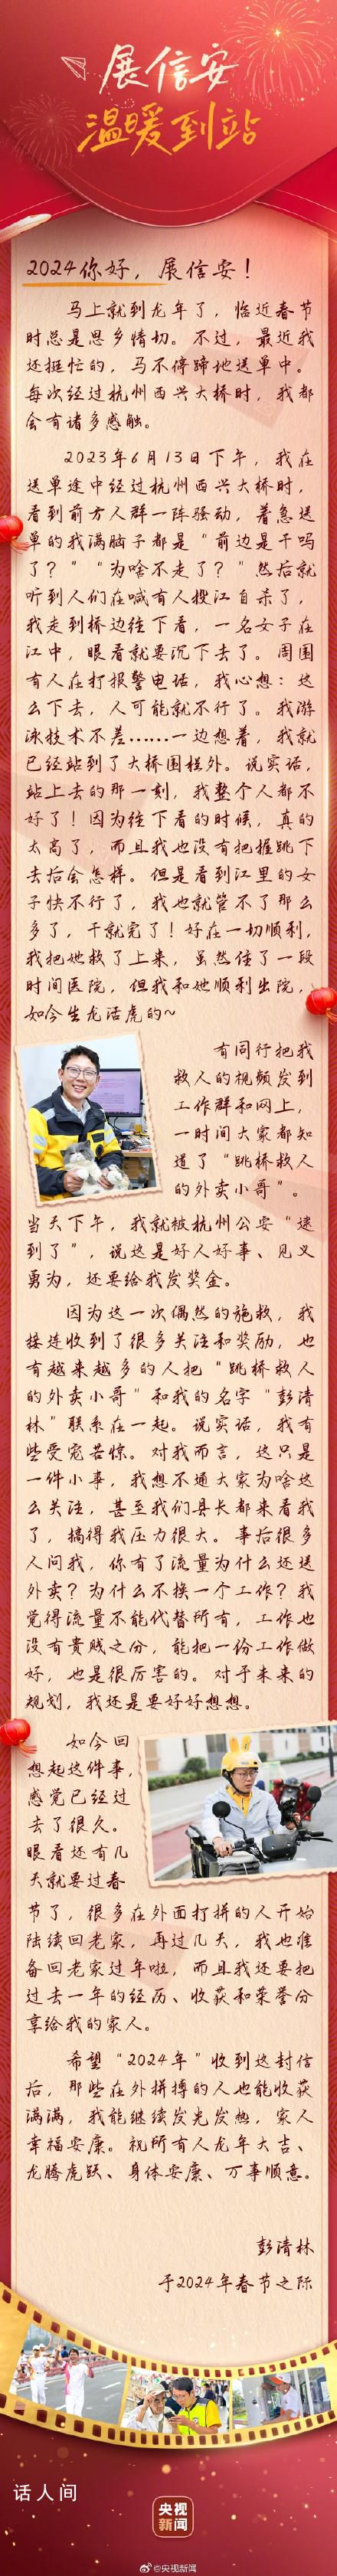 展信安
温暖到站
2024你好，展信安！
马上就到龙年了，临近春节
时总是思乡情切。不过，最近我
还挺忙的，马不停蹄地送单中。
每次经过杭州西兴大桥时，我都
会有诸多感触。
2023年6月13日下午，我在
送单途中经过杭州西兴大桥时，
看到前方人群一阵骚动，着急送
单的我满脑子都是“前边是干吗
了？”“为啥不走了？”然后就
听到人们在喊有人投江自杀了，
我走到桥边往下看，一名女子在
江中，眼看就要沉下去了。周围
有人在打报警电话，我心想：这
么下去，人可能就不行了。我游
泳技术不差……一边想着，我就
已经站到了大桥围栏外。说实话，
站上去的那一刻，我整个人都不
好了！因为往下看的时候，真的
太高了，而且我也没有把握跳下
去后会怎样。但是看到江里的女
子快不行了，我也就管不了那么
多了，干就完了！好在一切顺利，
我把她救了上来，虽然住了一段
时间医院，但我和她顺利出院，
如今生龙活虎的~
有同行把我
救人的视频发到
工作群和网上，
一时间大家都知
道了“跳桥救人
的外卖小哥”。
当天下午，我就被杭州公安“逮
到了”，说这是好人好事、见义
勇为，还要给我发奖金。
因为这一次偶然的施救，我
接连收到了很多关注和奖励，也
有越来越多的人把“跳桥救人
的外卖小哥”和我的名字“彭清
林”联系在一起。说实话，我有
些受宠若惊。对我而言，这只是
一件小事，我想不通大家为啥这
么关注，甚至我们县长都来看我
了，搞得我压力很大。事后很多
人问我，你有了流量为什么还送
外卖？为什么不换一个工作？我
觉得流量不能代替所有，工作也
没有贵贱之分，能把一份工作做
好，也是很厉害的。对于未来的
规划，我还是要好好想想。
如今回
想起这件事，
感觉已经过
去了很久。
眼看还有几
天就要过春
节了，很多在外面打拼的人开始
陆续回老家，再过几天，我也准
备回老家过年啦，而且我还要把
过去一年的经历、收获和荣誉分
享给我的家人。
希望“2024年”收到这封信
后，那些在外拼搏的人也能收获
满满，我能继续发光发热，家人
幸福安康。祝所有人龙年大吉、
龙腾虎跃、身体安康、万事顺意。
彭清林
于2024年春节之际
话人间
央视
新闻
@央视新闻